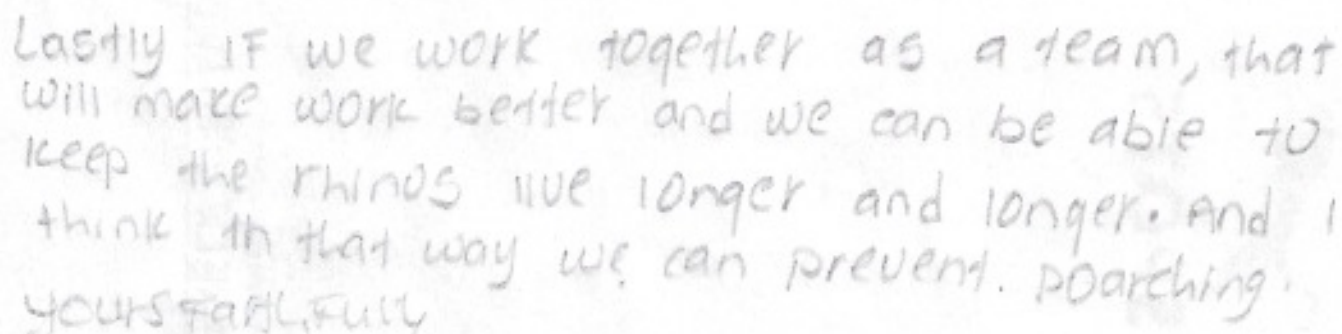 Lastly if we work together as a team, that
will make work better and we can be able to
keep the rhinos live longer and longer. And I
think in that way we can prevent. poarching.
yours faithfull